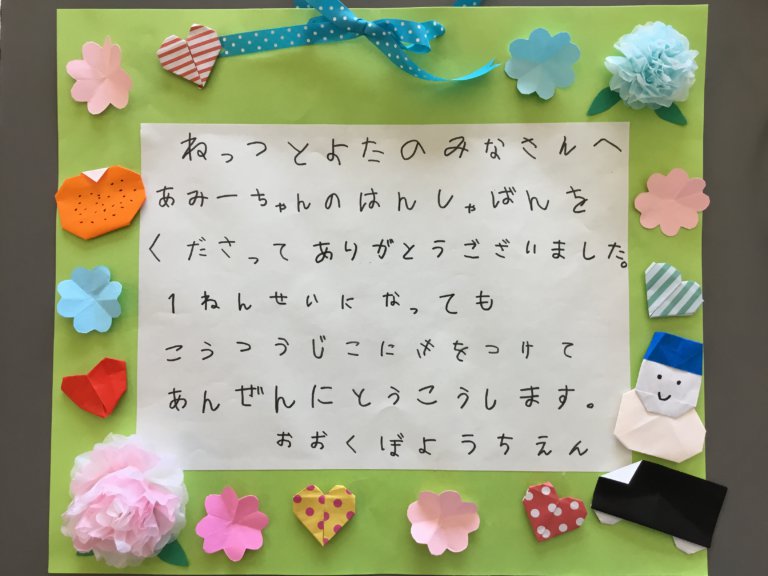 ねっつとよたのみなさんへ
あみーちゃんのはんしゃばんを
くださってありがとうございました。
1ねんせいになっても
こうつうじこにきをつけて
あんぜんにとうこうします。
おおくぼようちえん